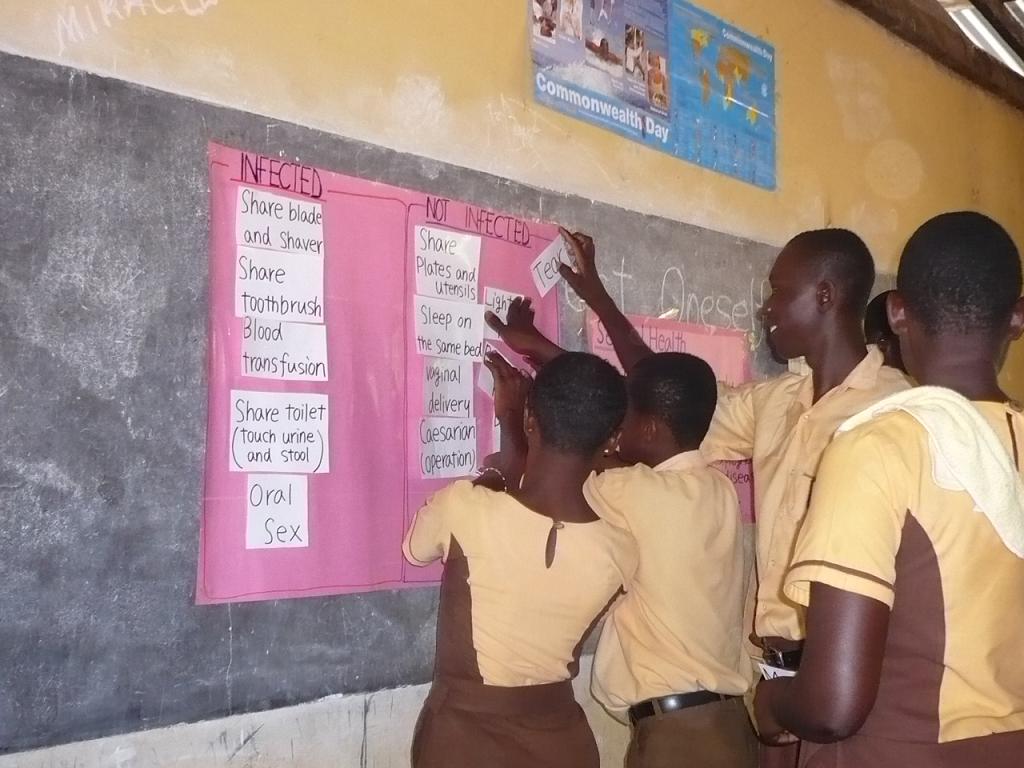 MIRACLE
Commonwealth Day
Commonwealth Day
INFECTED
Share blade
and Shaver
Share
toothbrush
Blood
transfusion
Share toilet
(touch urine
and stool)
Oral
Sex
NOT INFECTED
Share
Plates and
utensils
Sleep on
the same bed
vaginal
delivery
Caesarian
(operation)
Light
Tea
Oneself
Health